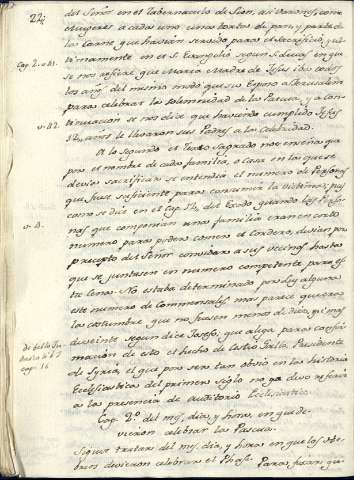 22.
del Señor en el Tabernaculo de Sion, asi Varones, como
Mugeres a cada uno una torta de pan, y parte de
las Carnes que havian servido para el Sacrificio, y ul-
timamente en el S. Evangelio segun S. Lucas en que
Cap. 2. v. 41.
se nos refiere que Maria Madre de Jesus iba todos
los años del mismo modo que su Esposo a Jerusalem
para celebrar la solemnidad de la Pascua, y a con-
tinuacion se nos dice que haviendo cumplido Jesus
v. 42.
12 años le llevaron sus Padres a la Celebridad.
A lo segundo el Texto Sagrado nos enseña que
por el nombre de cada familia, o casa en la que se
devia sacrificar se entendia el numero de Personas
que fuese suficiente para consumir la victima; pues
como se dice en el Cap. 12 del Exodo quando las Perso-
nas que componian una familia eran en corto
v. 4.
numero para poderse comer el Cordero, devian por
precepto del Señor convidar a sus vecinos, hasta
que se juntasen en numero competente para es-
ta Cena. No estaba determinado por Ley alguna
este numero de Commensales, mas parece queria
la costumbre que no fuesen menos de diez, ni mas
de veinte segun dice Josefo, que alega para confir-
De bello Ju-
macion de esto el hecho de Cestio Galo, Presidente
daico lib. 6. 7
cap. 16
de Syria, el que por ser tan obvio en la historia
Ecclesiastica del primer siglo no ya devo referir
a la presencia de Auditorio Ecclesiastico.
Cap. 2.º del mes, dia, y hora en que de-
vieron celebrar la Pascua.
Sigue tratar del mes, dia, y hora en que los He-
breos devieron celebrar el Phase. Para fixar, que